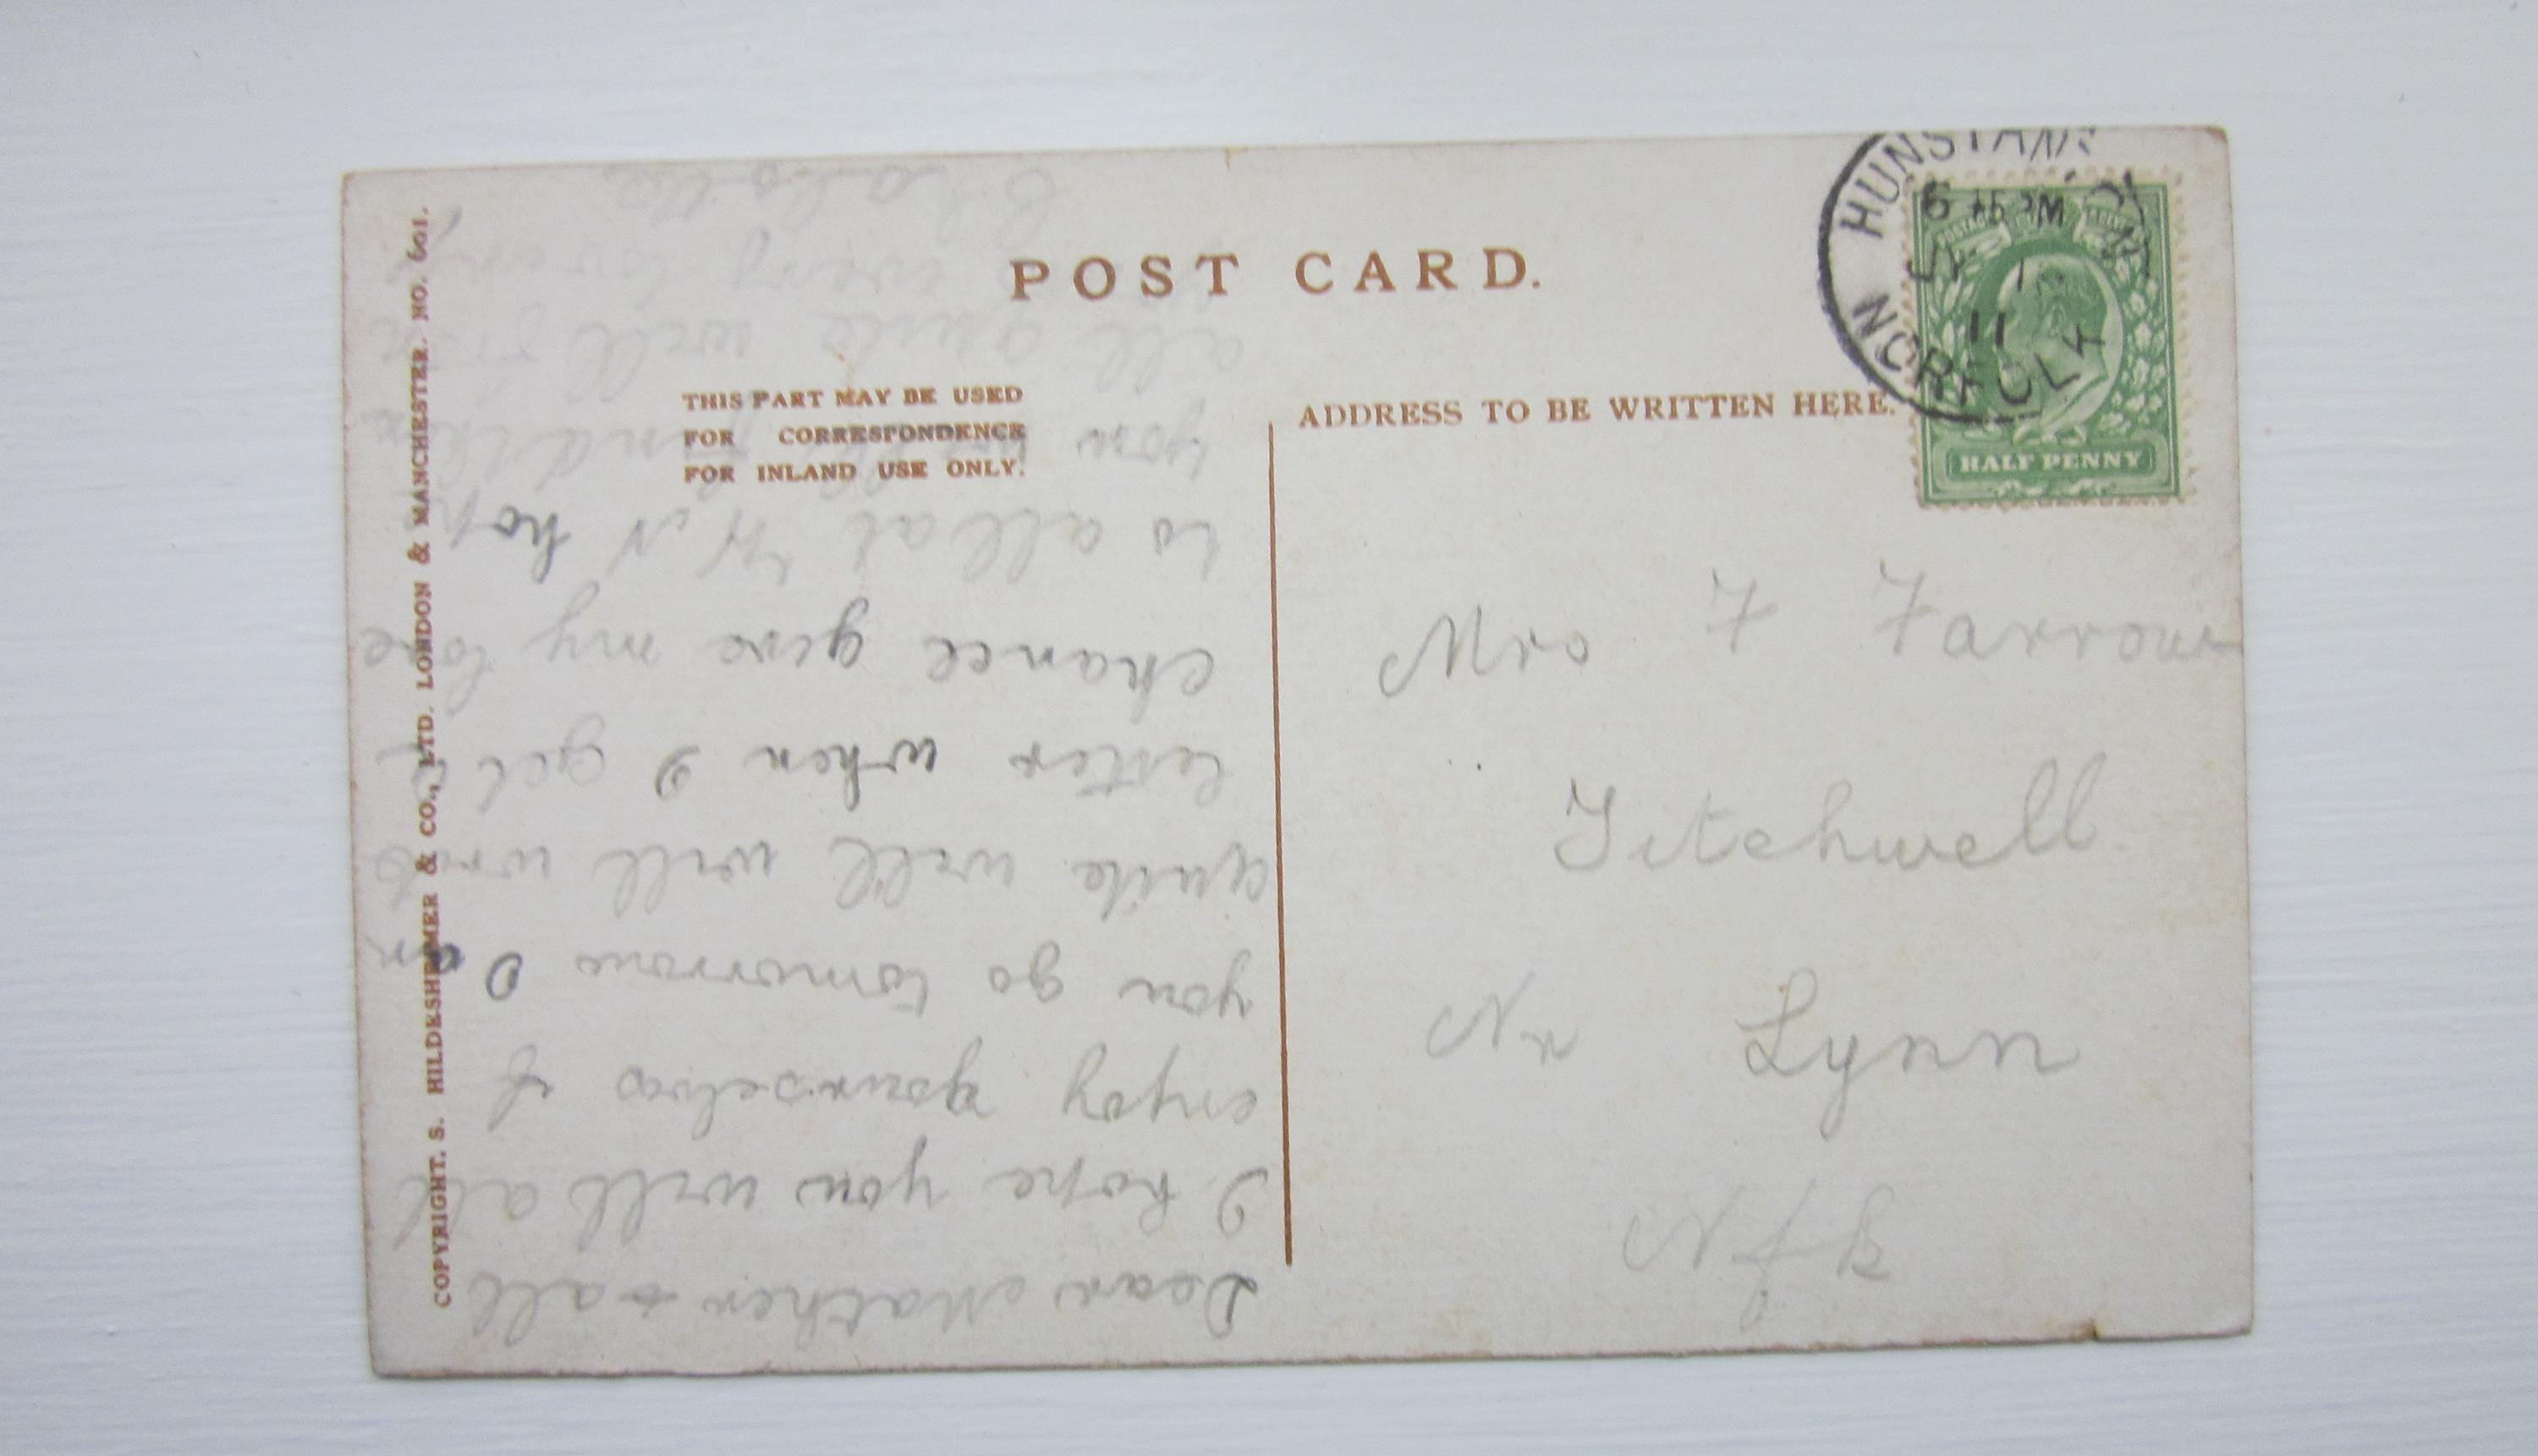 POST CARD.
THIS PART MAY BE USED
FOR CORRESPONDENCE
FOR INLAND USE ONLY.
ADDRESS TO BE WRITTEN HERE.
COPYRIGHT. S. HILDESHEIMER & CO., LTD. LONDON & MANCHESTER. NO. 601.
HUNSTAN
6 45 PM
11
NORFOLK
HALF PENNY
Mrs F Farrow
Titchwell
Nr Lynn
Dear Mother & all
I hope you will all
enjoy yourselves if
you go tomorrow I am
quite well will write
letter when I get a
chance give my love
to all at H N hope
you
all quite well from
very loving